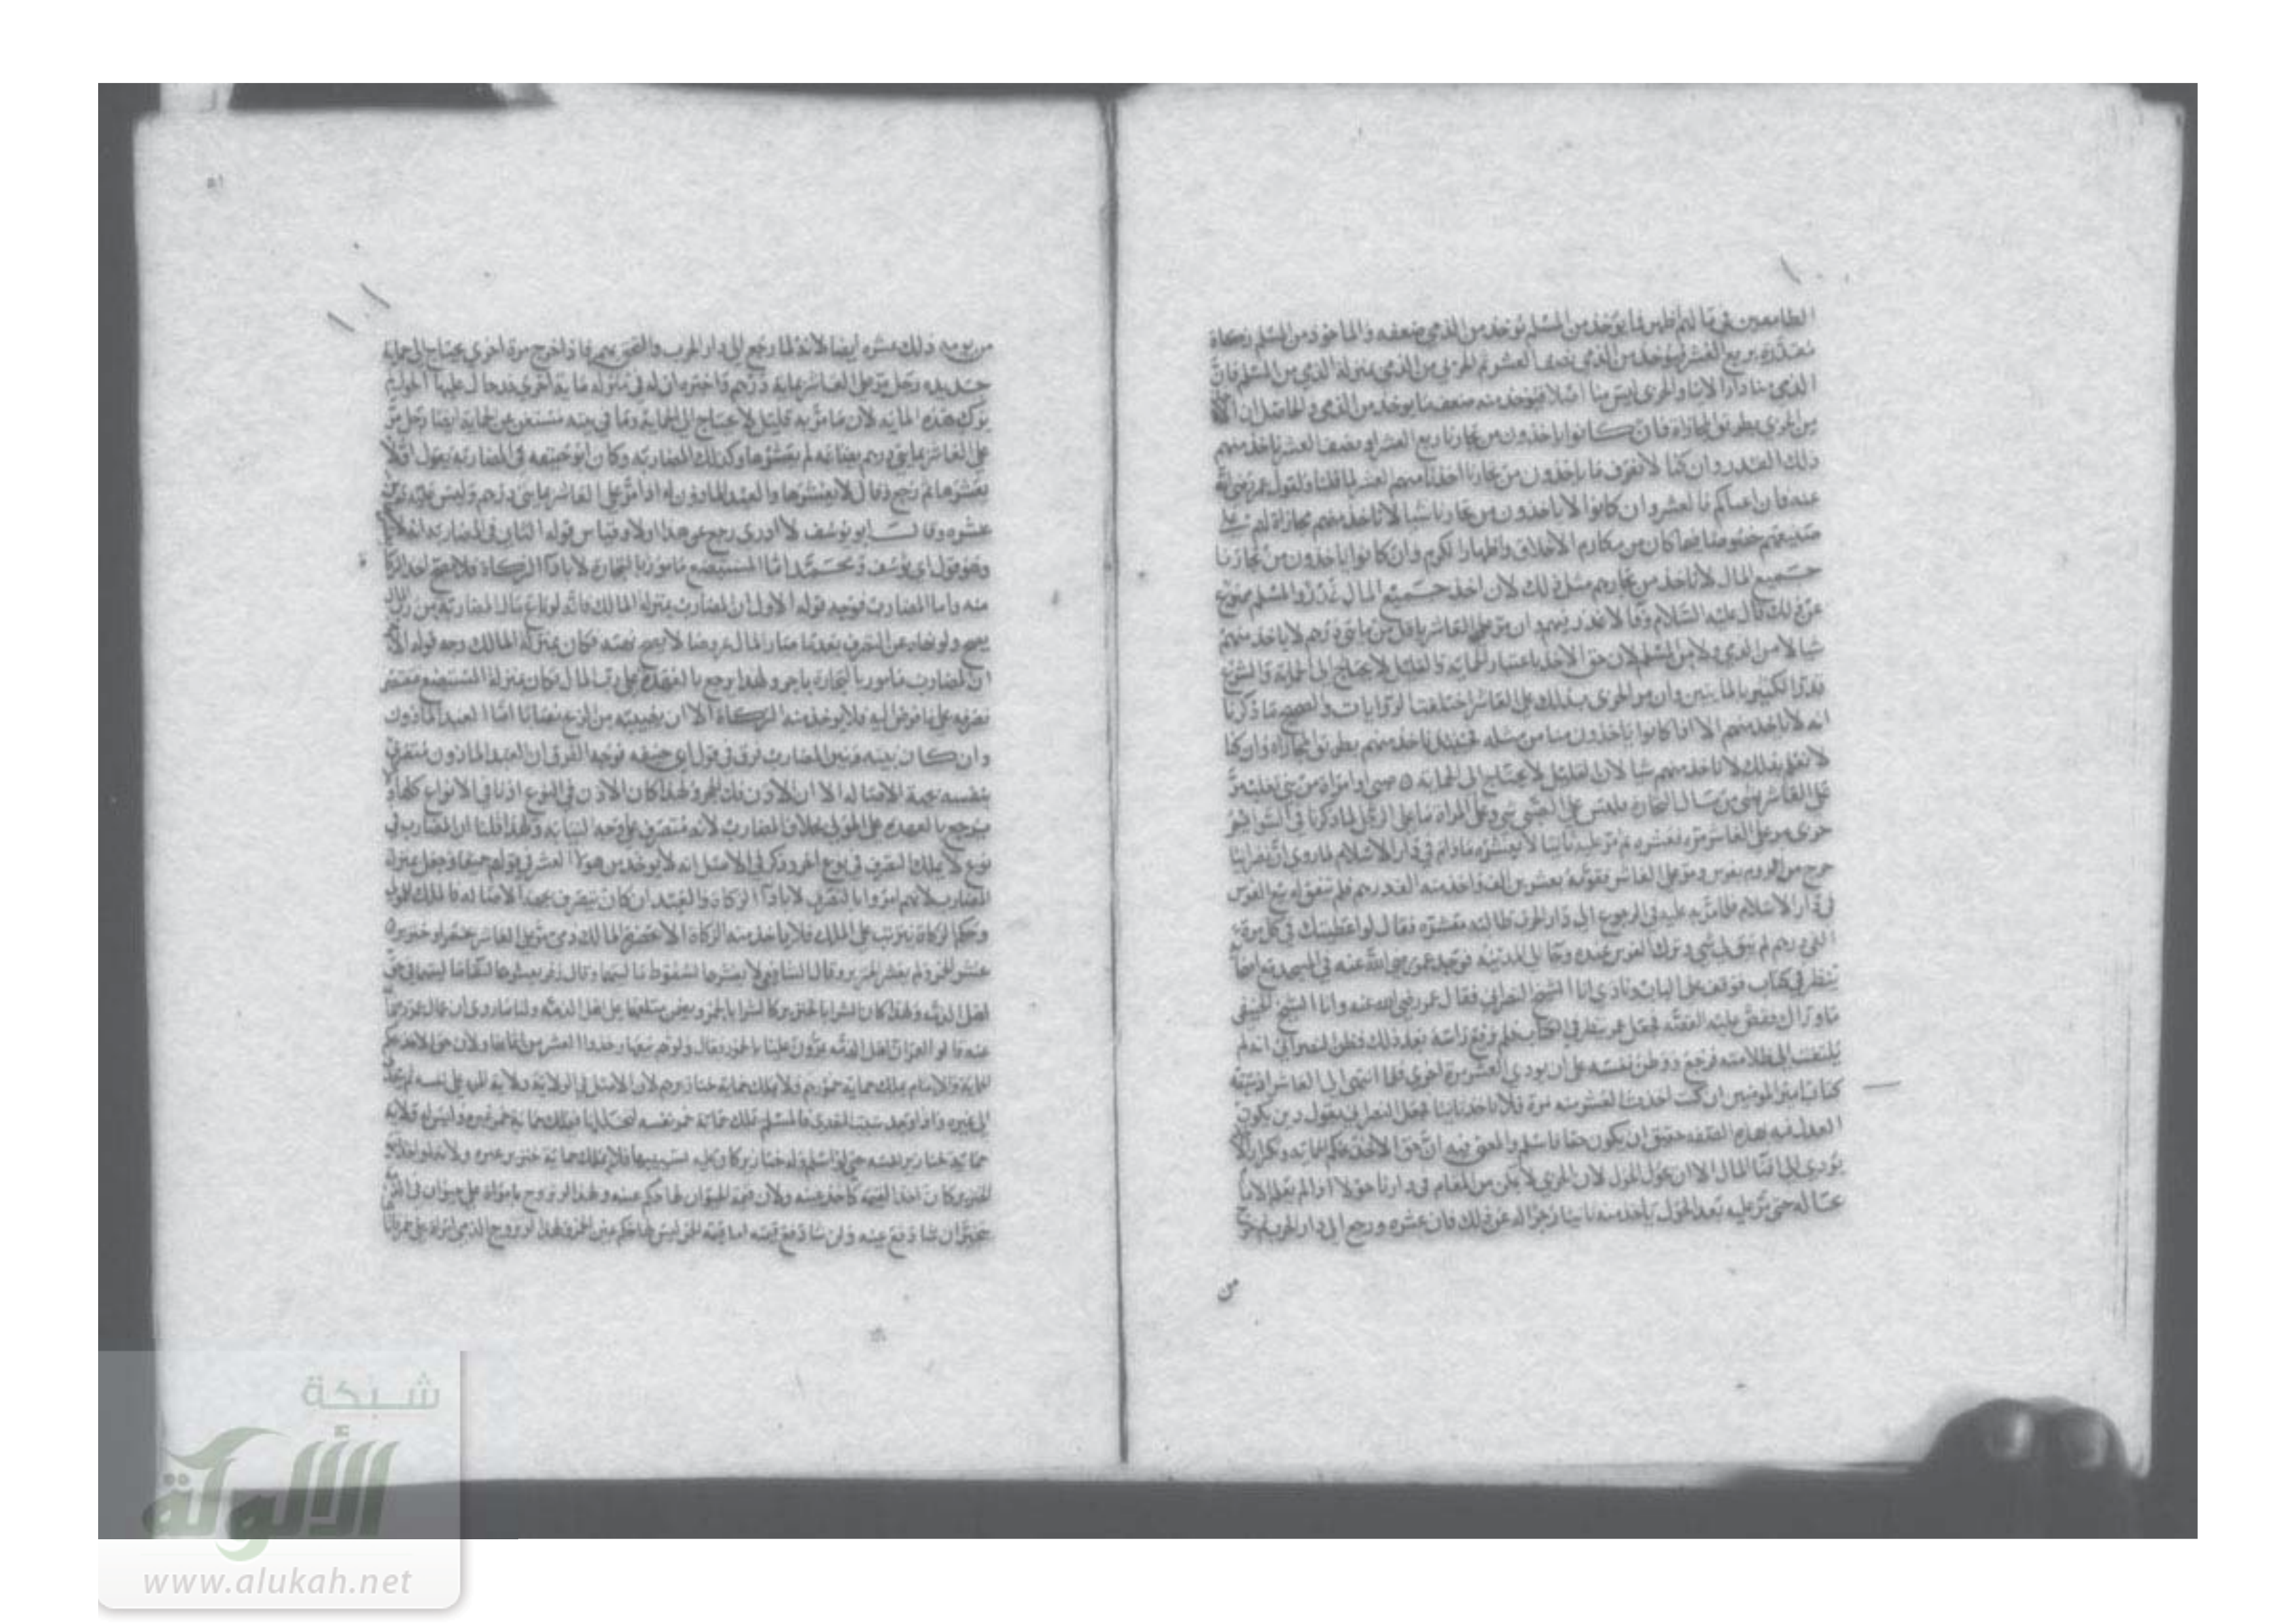 الطامعين في مالهم اظهر فما يوخذ من المسلم يوخذ من الذمي ضعفه والماخوذ من المسلم زكاة
مقدرة بربع العشر فيوخذ من الذمي نصف العشر ثم الحربي من الذمي بمنزلة الذمي من المسلم فان
الذمي منا دارا لا دينا والحربي ليس منا اصلا فيوخذ منه ضعف ما يوخذ من الذمي والحاصل ان
من الحربي بطريق المجازاة فان كانوا ياخذون من تجارنا ربع العشر او نصف العشر ناخذ منهم
ذلك القدر وان كنا لا نعرف ما ياخذون من تجارنا اخذنا منهم العشر لما قلنا ولقول عمر رضي الله
عنه فان اعياكم فالعشر وان كانوا لا ياخذون من تجارنا شيا لا ناخذ منهم مجازاة لهم على
صنيعهم خصوصا فيما كان من مكارم الاخلاق واظهار الكرم وان كانوا ياخذون من تجارنا
جميع المال لا ناخذ من تجارهم مثل ذلك لان اخذ جميع المال غدر والمسلم ممنوع
عن ذلك قال عليه السلام وفا لا غدر فيهم وان مر على العاشر باقل من مايتي درهم لا ياخذ منهم
شيا لا من الذمي ولا من المسلم لان حق الاخذ باعتبار الحماية والقليل لا يحتاج الى الحماية والشرع
قدر الكثير بالمايتين وان مر الحربي بذلك على العاشر اختلفت الروايات والصحيح ما ذكرنا
انه لا ناخذ منهم الا اذا كانوا ياخذون منا من مثله فحينئذ ناخذ منهم بطريق المجازاة وان كنا
لا نعلم بذلك لا ناخذ منهم شيا لان القليل لا يحتاج الى الحماية ٥ صبي او امراة من بني تغلب مر
على العاشر بشي من مال التجارة فليس على الصبي شي وعلى المراة ما على الرجل لما ذكرنا في السوايم
حربي مر على العاشر مرة فعشره ثم مر عليه ثانيا لا يعشره ما دام في دار الاسلام لما روي ان نصرانيا
خرج من الروم بفرس ومر على العاشر فقومه بعشرين الف واخذ منه الف درهم فلم يتفق له بيع الفرس
في دار الاسلام فلما مر به عليه في الرجوع الى دار الحرب طالبه بعشره فقال لو اعطيتك في كل مرة
الف درهم لم يبق لي شي وترك الفرس عنده وجا الى المدينة فوجد عمر رضي الله عنه في المسجد مع اصحابه
ينظر في كتاب فوقف على الباب ونادى انا الشيخ النصراني فقال عمر رضي الله عنه وانا الشيخ الحنيفي
ما وراك فقص عليه القصة فجعل عمر ينظر في الكتاب فلم يرفع راسه بعد ذلك فظن النصراني انه لم
يلتفت الى ظلامته فرجع ووطن نفسه على ان يودي العشر مرة اخرى فلما انتهى الى العاشر اذ سبقه
كتاب امير المومنين ان كنت اخذت العشر منه مرة فلا تاخذ ثانيا فجعل النصراني يقول دين يكون
العدل فيه بهذه الصفة حقيق ان يكون حقا فاسلم والمعنى فيه ان حق الاخذ بحكم الحماية وتكرار
يودي الى افنا المال الا ان يحول الحول لان الحربي لا يمكن من المقام في دارنا حولا او لم يعلم الامام
بحاله حتى مر عليه بعد الحول ياخذ منه ثانيا زجرا له عن ذلك فان عشره ورجع الى دار الحرب ثم خرج
من
من يومه ذلك عشره ايضا لانه لما رجع الى دار الحرب والتحق بهم فاذا خرج مرة اخرى يحتاج الى حماية
جديدة رجل مر على العاشر بماية درهم واخبره ان له في منزله ماية اخرى قد حال عليها الحول لم
يزك هذه الماية لان ما مر به قليل لا يحتاج الى الحماية وما في بيته مستغن عن الحماية ايضا رجل مر
على العاشر بمايتي درهم بضاعة لم يعشرها وكذلك المضاربة وكان ابو حنيفة في المضاربة يقول اولا
يعشرها ثم رجع وقال لا يعشرها والعبد الماذون له اذا مر على العاشر بمايتي درهم وليس عليه دين
عشره وقال ابو يوسف لا ادري رجع عن هذا اولا وقياس قوله الثاني في المضاربة انه لا
وهو قول ابي يوسف ومحمد اما المستبضع مامور بالتجارة لا باداء الزكاة فلا يصح اخذ الزكاة
منه واما المضارب فوجه قوله الاول ان المضارب بمنزلة المالك فانه لو باع مال المضاربة من رب المال
يصح ولو نهاه عن التصرف بعد ما صار المال عروضا لا يصح نهيه فكان بمنزلة المالك وجه قوله
ان المضارب مامور بالتجارة ياجر ولهذا يرجع بالعهدة على رب المال فكان بمنزلة المستبضع فيقتصر
تصرفه على ما فوض اليه فلا يوخذ منه الزكاة الا ان نصيبه من الربح نصابا اما العبد الماذون
وان كان بينه وبين المضارب فرق في قول ابي حنيفة فوجه الفرق ان العبد الماذون متصرف
بنفسه بجهة الاصالة الا ان الاذن فك الحجر ولهذا كان الاذن في النوع اذنا في الانواع كلها
يرجع بالعهدة على المولى بخلاف المضارب لانه متصرف على وجه النيابة ولهذا قلنا ان المضارب في
نوع لا يملك التصرف في نوع اخر وذكر في الاصل انه لا يوخذ من هولا العشر في قولهم جميعا وجعل بمنزلة
المضارب لانهم امروا بالتصرف لا باداء الزكاة والعبد ان كان يتصرف بجهة الاصالة فالملك للمولى
وحكم الزكاة يترتب على الملك فلا ياخذ منه الزكاة الا بحضرة المالك ذمي مر على العاشر بخمر او خنزير ٥
عشر الخمر ولم يعشر الخنزير وقال الشافعي لا يعشرها لسقوط ماليتها وقال زفر يعشرها لان لهما ماليتهما في حق
اهل الذمة ولهذا كان الشرا بالخنزير كالشرا بالخمر وبعض متلفها على اهل الذمة ولنا ما روي ان عمال عمر رضي الله
عنه قالوا له ان اهل الذمة يمرون علينا بالخمور فقال ولوهم بيعها وخذوا العشر من اثمانها ولان حق الاخذ بحكم
الحماية والامام يملك حماية خمورهم ولا يملك حماية خنازيرهم لان الاصل في الولاية ولاية المرء على نفسه ثم
الى غيره واذا وجد سبب التعدي فالمسلم يملك حماية خمر نفسه لتخللها فيملك حماية خمر غيره وليس له ولاية
حماية خنازير نفسه حتى لو اسلم وله خنازير كان عليه تسييبها فلا يملك حماية خنزير غيره ولانه لو اخذ
الخنزير كان اخذ القيمة كاخذ عينه ولان قيمة الحيوان لها حكم عينه ولهذا لو تزوج بامراة على حيوان في الذمة
خير ان شا دفع عينه وان شا دفع قيمته اما قيمة الخمر ليس لها حكم عين الخمر ولهذا لو تزوج الذمي امراة على خمر
شبكة
الألوكة
www.alukah.net